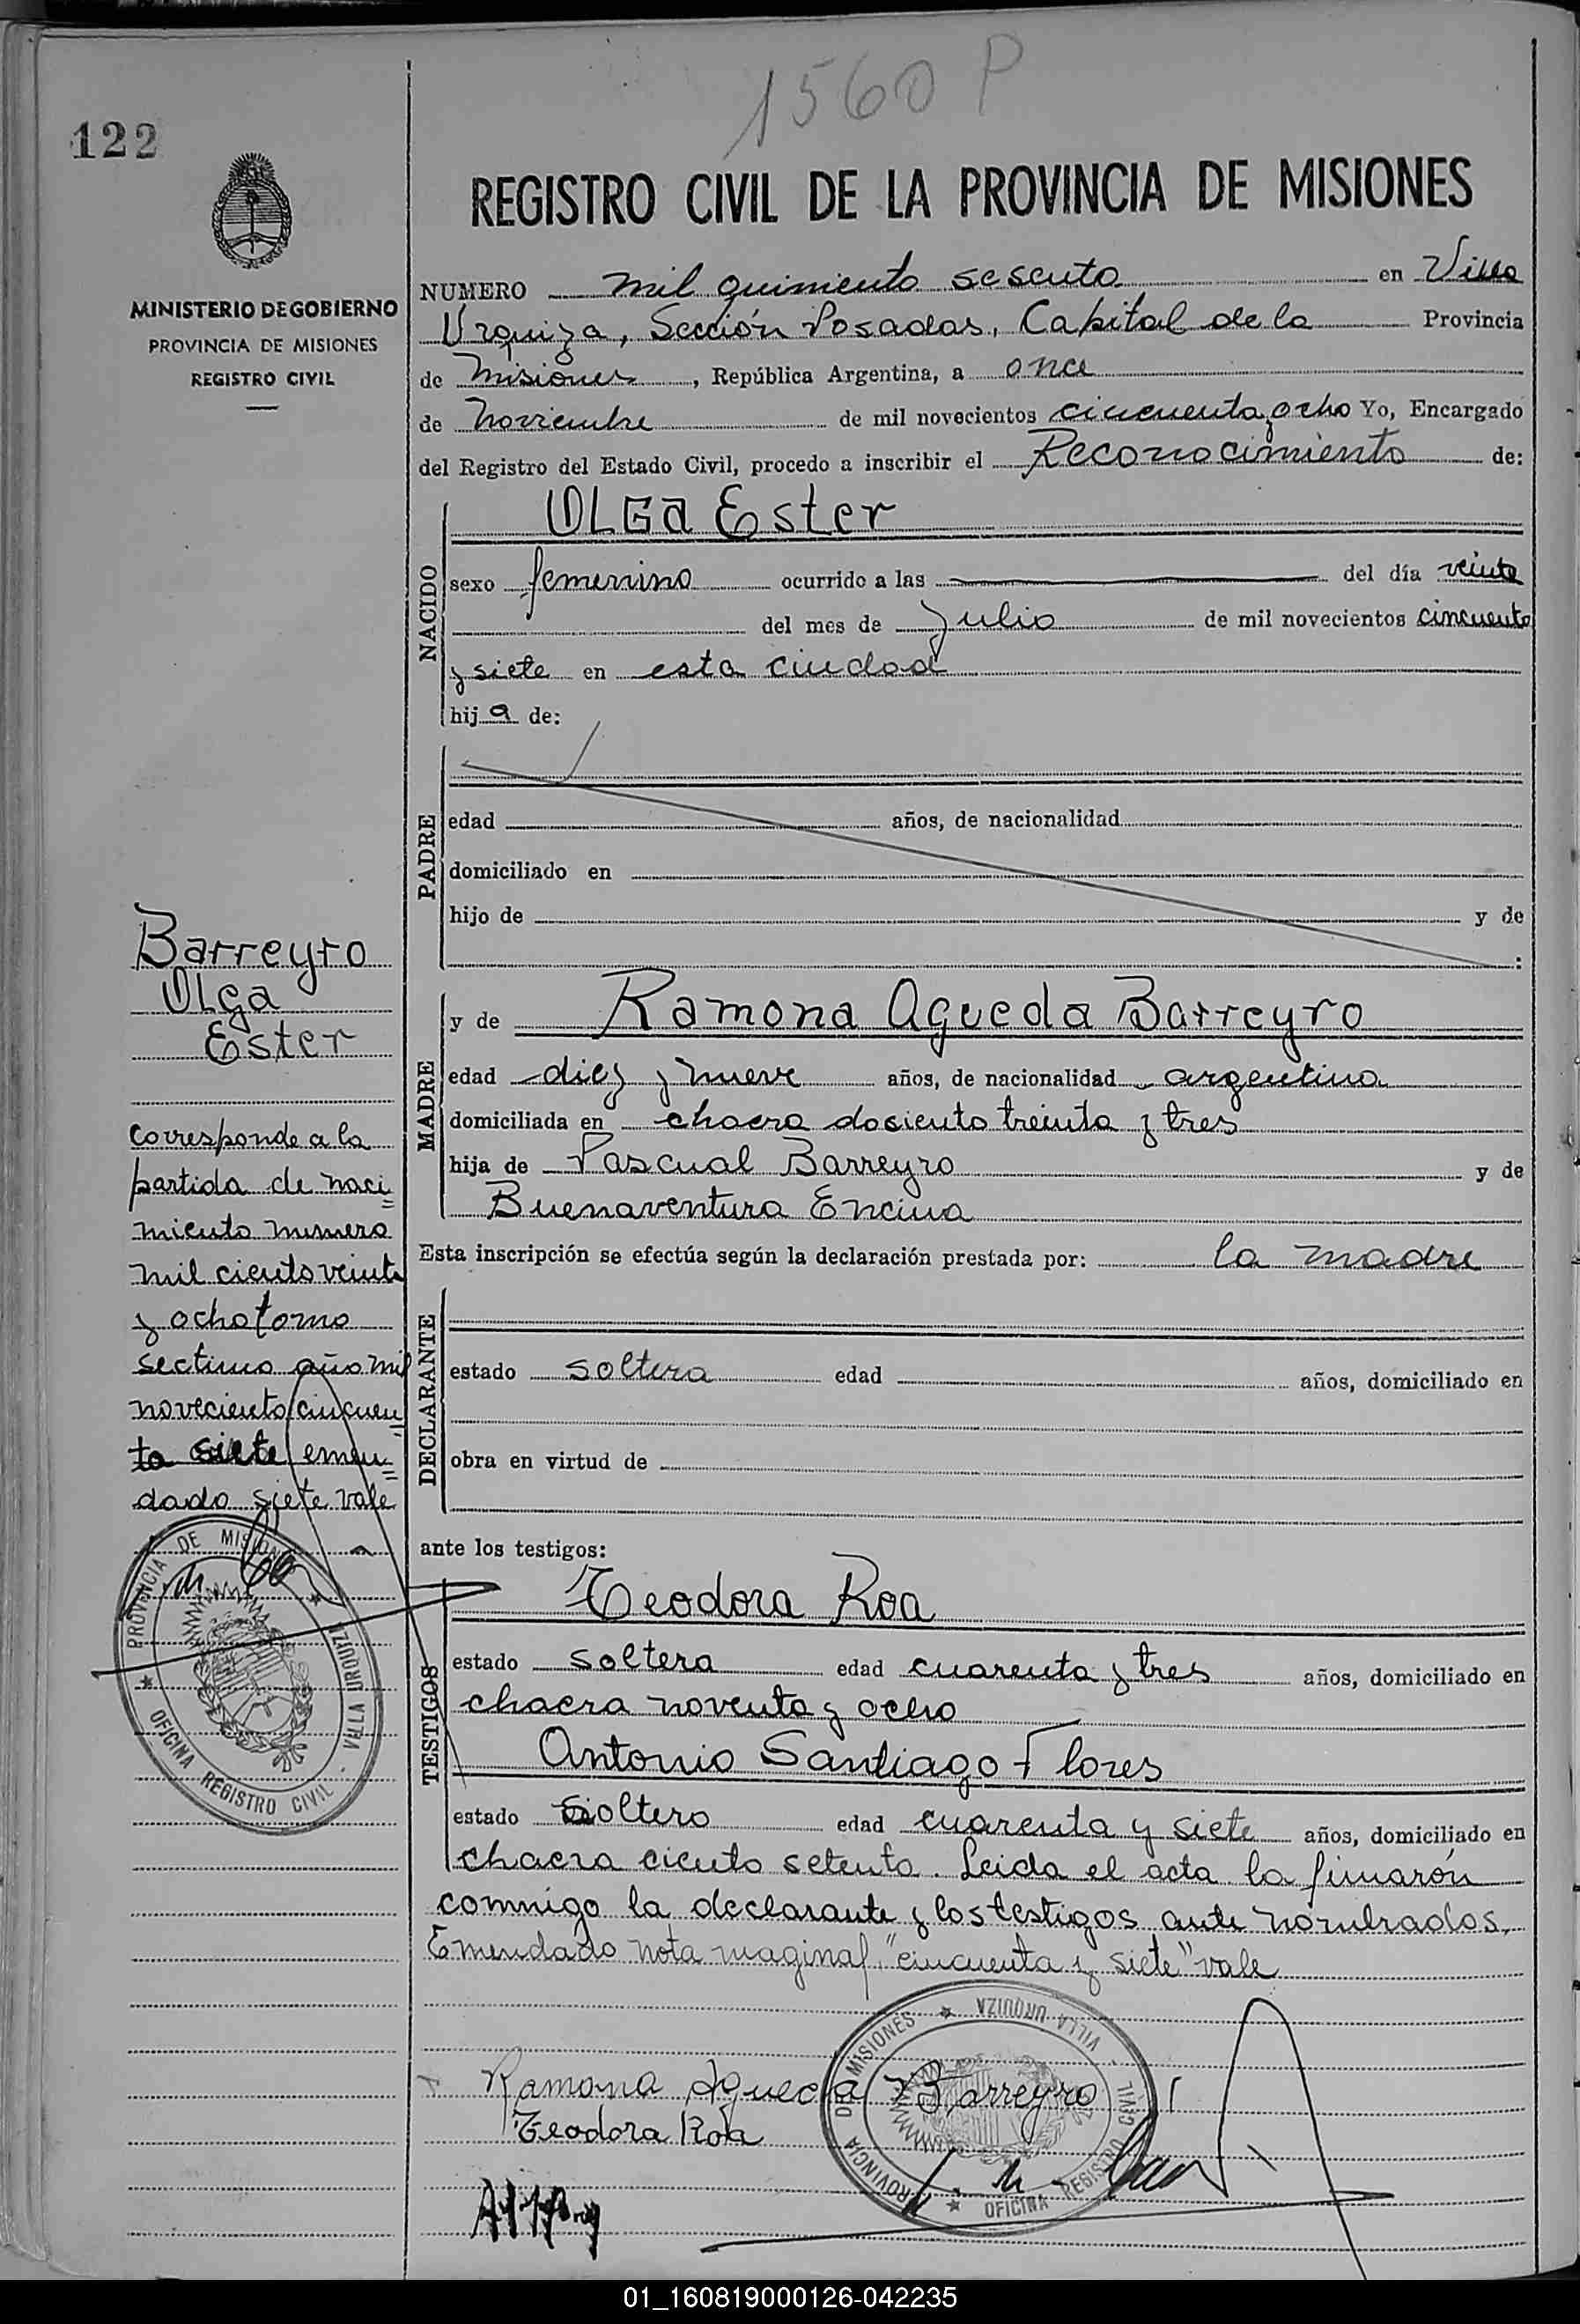 1560 P
122
REGISTRO CIVIL DE LA PROVINCIA DE MISIONES
MINISTERIO DE GOBIERNO
PROVINCIA DE MISIONES
REGISTRO CIVIL
NUMERO mil quiniento sesenta en Villa
Urquiza, Sección Posadas, Capital de la Provincia
de Misiones, República Argentina, a once
de Noviembre de mil novecientos cincuenta y ocho Yo, Encargado
del Registro del Estado Civil, procedo a inscribir el Reconocimiento de:
NACIDO
OLGA Ester
sexo femenino ocurrido a las del día veinte
del mes de Julio de mil novecientos cincuenta
y siete en esta ciudad
hija de:
PADRE
edad años, de nacionalidad
domiciliado en
hijo de y de
:
MADRE
y de Ramona Agueda Barreyro
edad diez y nueve años, de nacionalidad argentina
domiciliada en chacra dosciento treinta y tres
hija de Pascual Barreyro y de
Buenaventura Encina
Esta inscripción se efectúa según la declaración prestada por: la madre
DECLARANTE
estado soltera edad años, domiciliado en
obra en virtud de
ante los testigos:
TESTIGOS
Teodora Roa
estado soltera edad cuarenta y tres años, domiciliado en
chacra noventa y ocho
Antonio Santiago Flores
estado soltero edad cuarenta y siete años, domiciliado en
chacra ciento setenta. Leida el acta la fimarón
commigo la declarante y los testigos ante nombrados.
Emendado nota maginal, "cincuenta y siete" vale
Barreyro
Olga
Ester
Corresponde a la
partida de naci=
miento numero
mil ciento veinte
y ocho tomo
sectimo año mil
noveciento cincuen=
ta siete emen=
dado siete vale
PROVINCIA DE MISIONES
VILLA URQUIZA
OFICINA REGISTRO CIVIL
Ramona Agueda Barreyro
Teodora Roa
PROVINCIA DE MISIONES
VILLA URQUIZA
OFICINA REGISTRO CIVIL
01_160819000126-042235